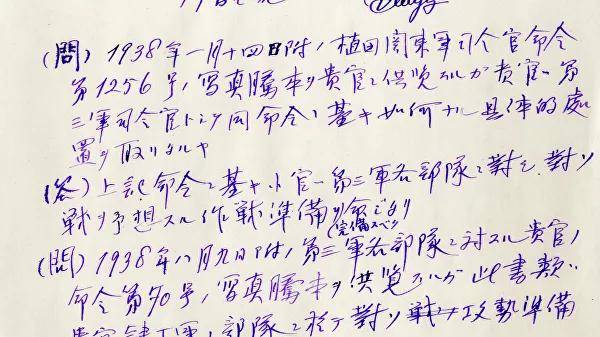 (問) 1938年一月十四日附ノ植田関東軍司令官命令
第1256号ノ写真謄本ヲ貴官ニ供覧スルガ貴官ハ第
三軍司令官トシテ同命令ニ基キ如何ナル具体的處
置ヲ取リタルヤ
(答) 上記命令ニ基キ小官ハ第三軍各部隊ニ對シ對ソ
戦ヲ予想スル作戦準備ヲ命じたり
(完備スベク)
(問) 1938年八月九日附ノ第三軍各部隊ニ対スル貴官ノ
命令第90号ノ写真謄本ヲ供覧スルガ此書類ハ
部隊ニ於テ對ソ攻勢準備